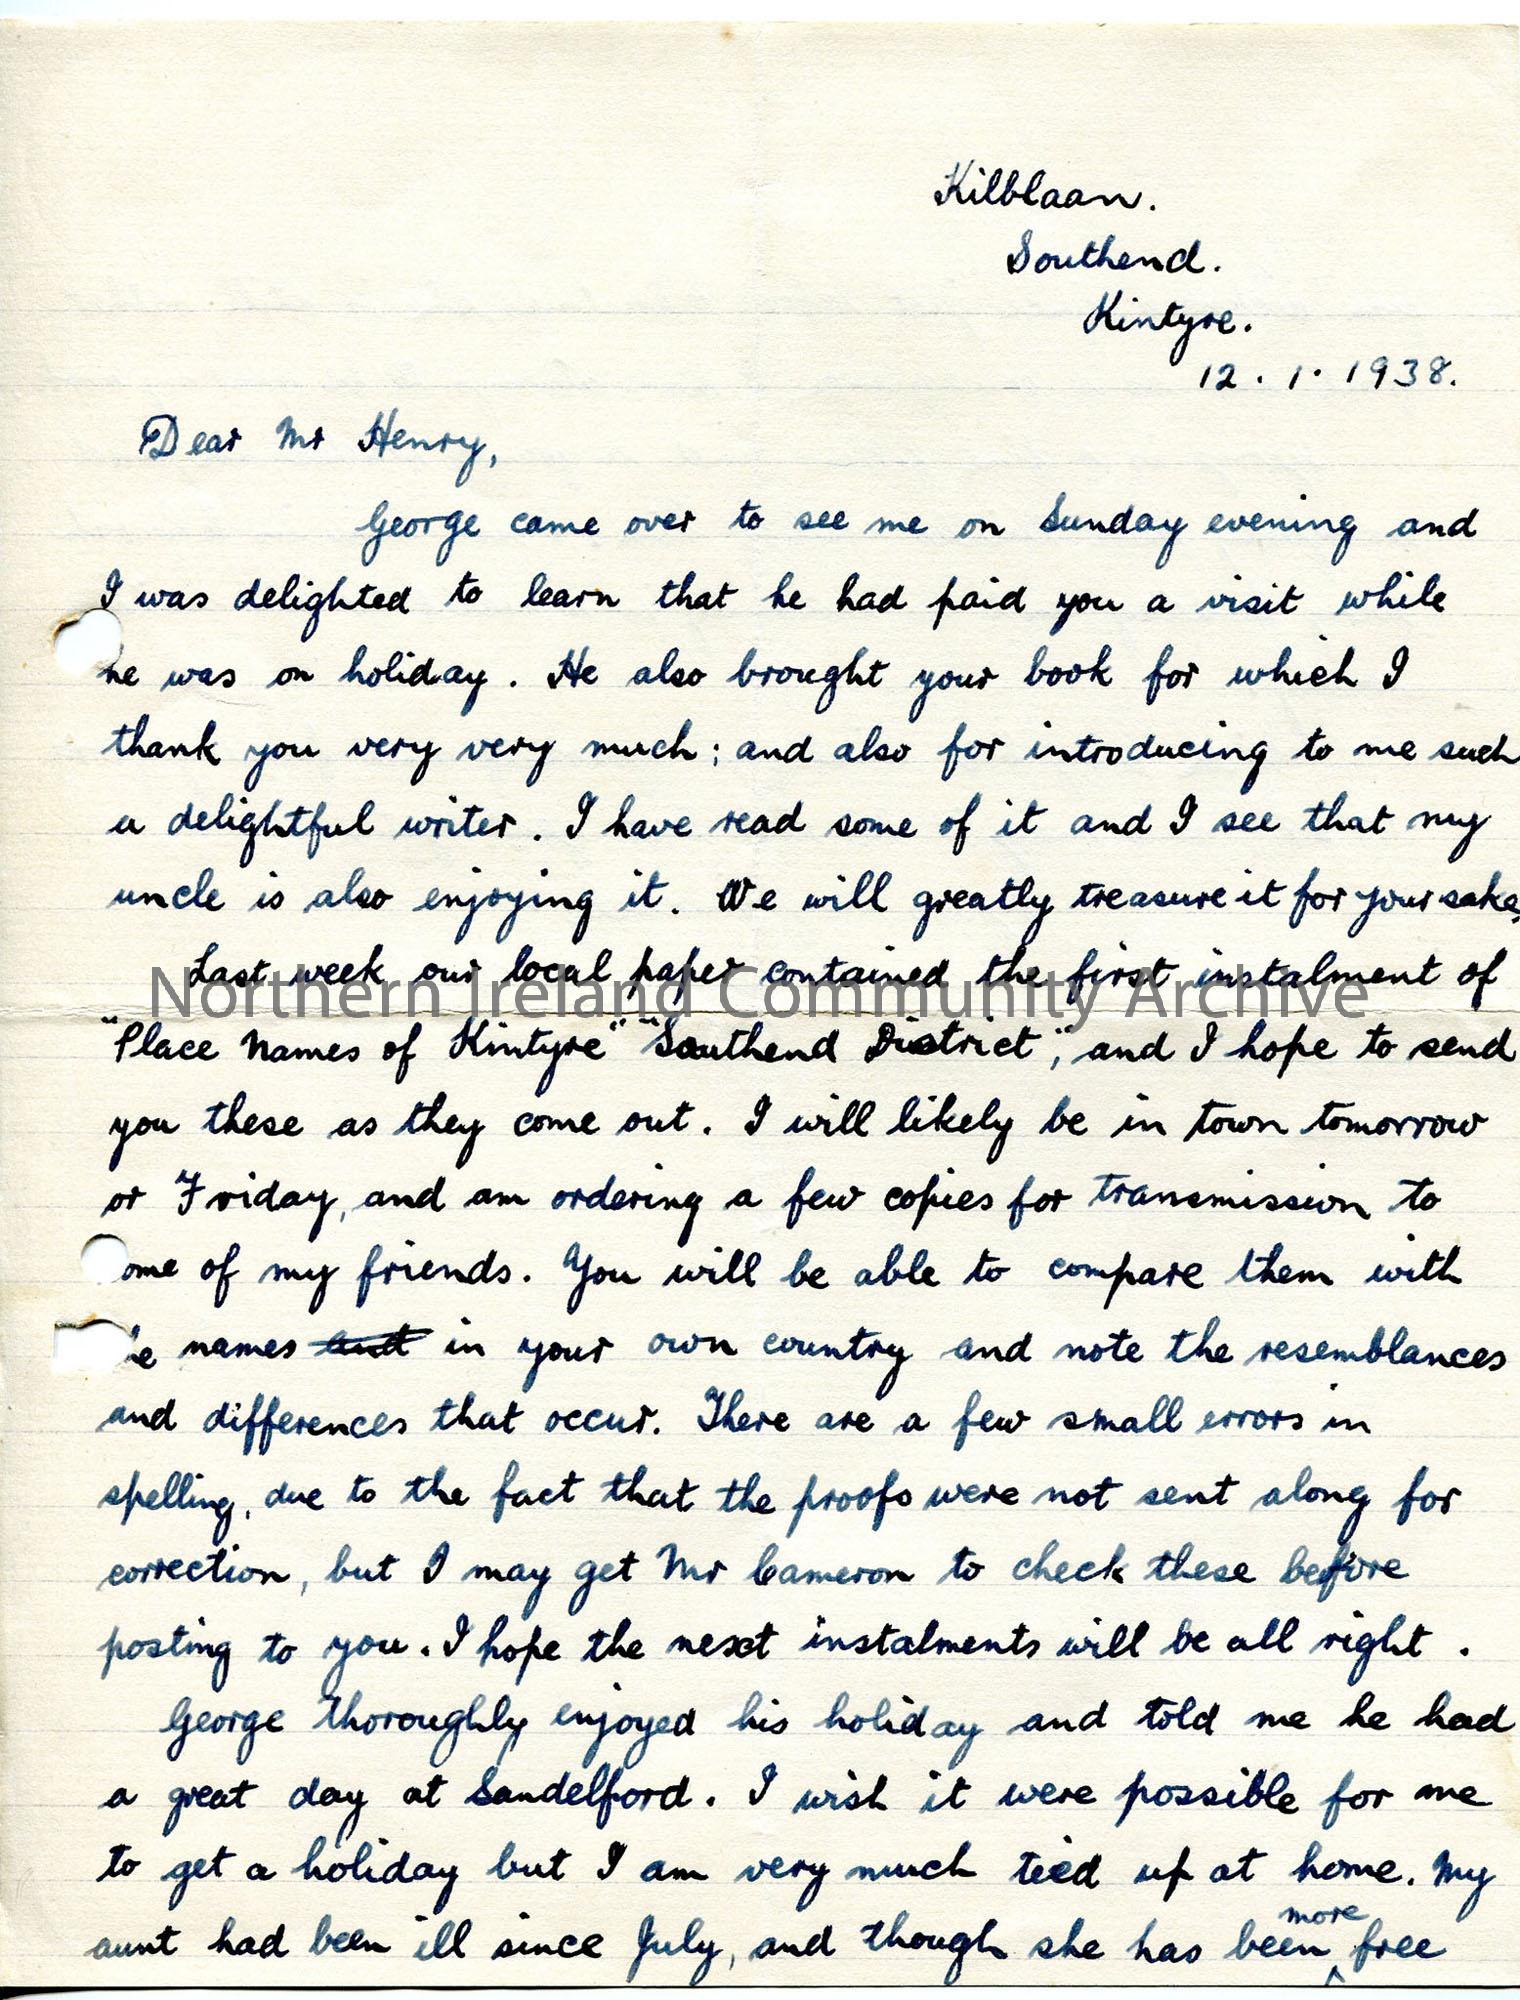 Kilblaan.
Southend.
Kintyre.
12.1.1938.
Dear Mr Henry,
George came over to see me on Sunday evening and
I was delighted to learn that he had paid you a visit while
he was on holiday. He also brought your book for which I
thank you very very much; and also for introducing to me such
a delightful writer. I have read some of it and I see that my
uncle is also enjoying it. We will greatly treasure it for your sake,
Last week our local paper contained the first instalment of
Northern Ireland Community Archive
"Place Names of Kintyre" "Southend District", and I hope to send
you these as they come out. I will likely be in town tomorrow
or Friday, and am ordering a few copies for transmission to
ome of my friends. You will be able to compare them with
he names and in your own country and note the resemblances
and differences that occur. There are a few small errors in
spelling, due to the fact that the proofs were not sent along for
correction, but I may get Mr Cameron to check these before
posting to you. I hope the next instalments will be all right.
George thoroughly enjoyed his holiday and told me he had
a great day at Sandelford. I wish it were possible for me
to get a holiday but I am very much tied up at home. My
aunt had been ill since July, and though she has been more free